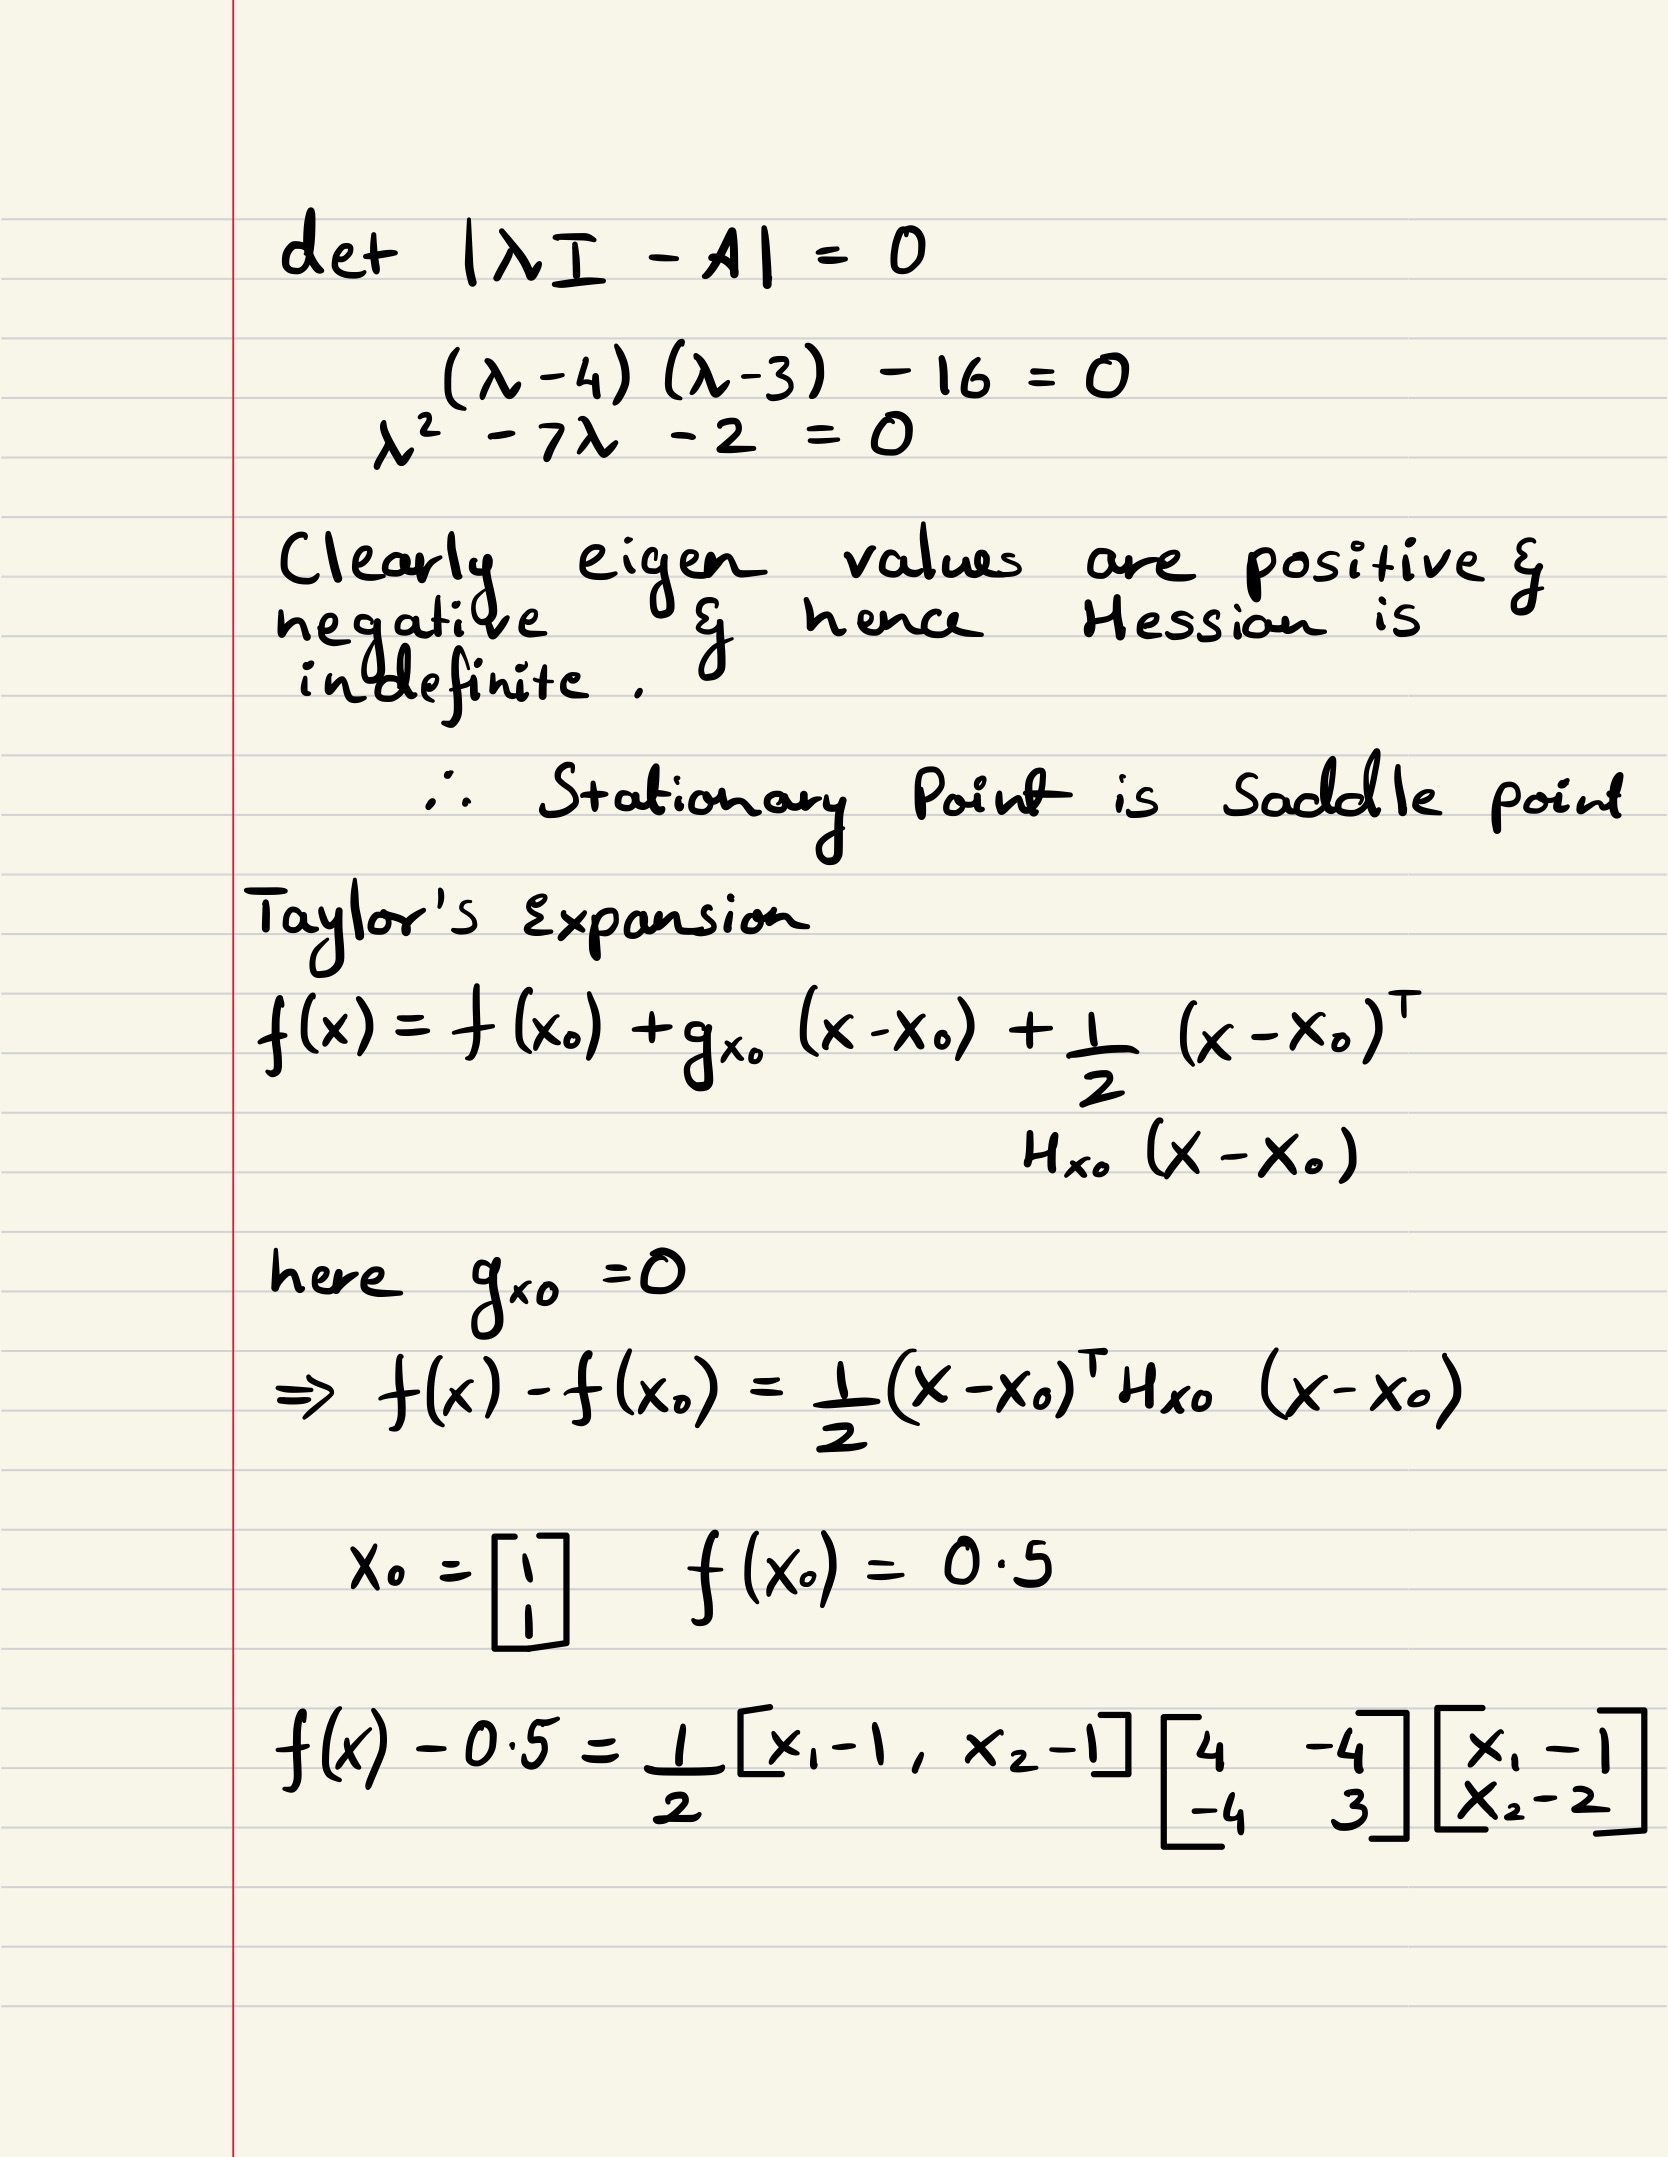 det |λI - A| = 0
(λ-4) (λ-3) - 16 = 0
λ² - 7λ - 2 = 0
Clearly eigen values are positive &
negative & hence Hessian is
indefinite .
∴ Stationary Point is Saddle point
Taylor's Expansion
f(x) = f(x₀) + gₓ₀ (x-x₀) + 1/2 (x-x₀)ᵀ
Hₓ₀ (x-x₀)
here gₓ₀ = 0
⇒ f(x) - f(x₀) = 1/2 (x-x₀)ᵀ Hₓ₀ (x-x₀)
x₀ = [1 1] f(x₀) = 0.5
f(x) - 0.5 = 1/2 [x₁-1, x₂-1] [4 -4 -4 3] [x₁-1 x₂-2]